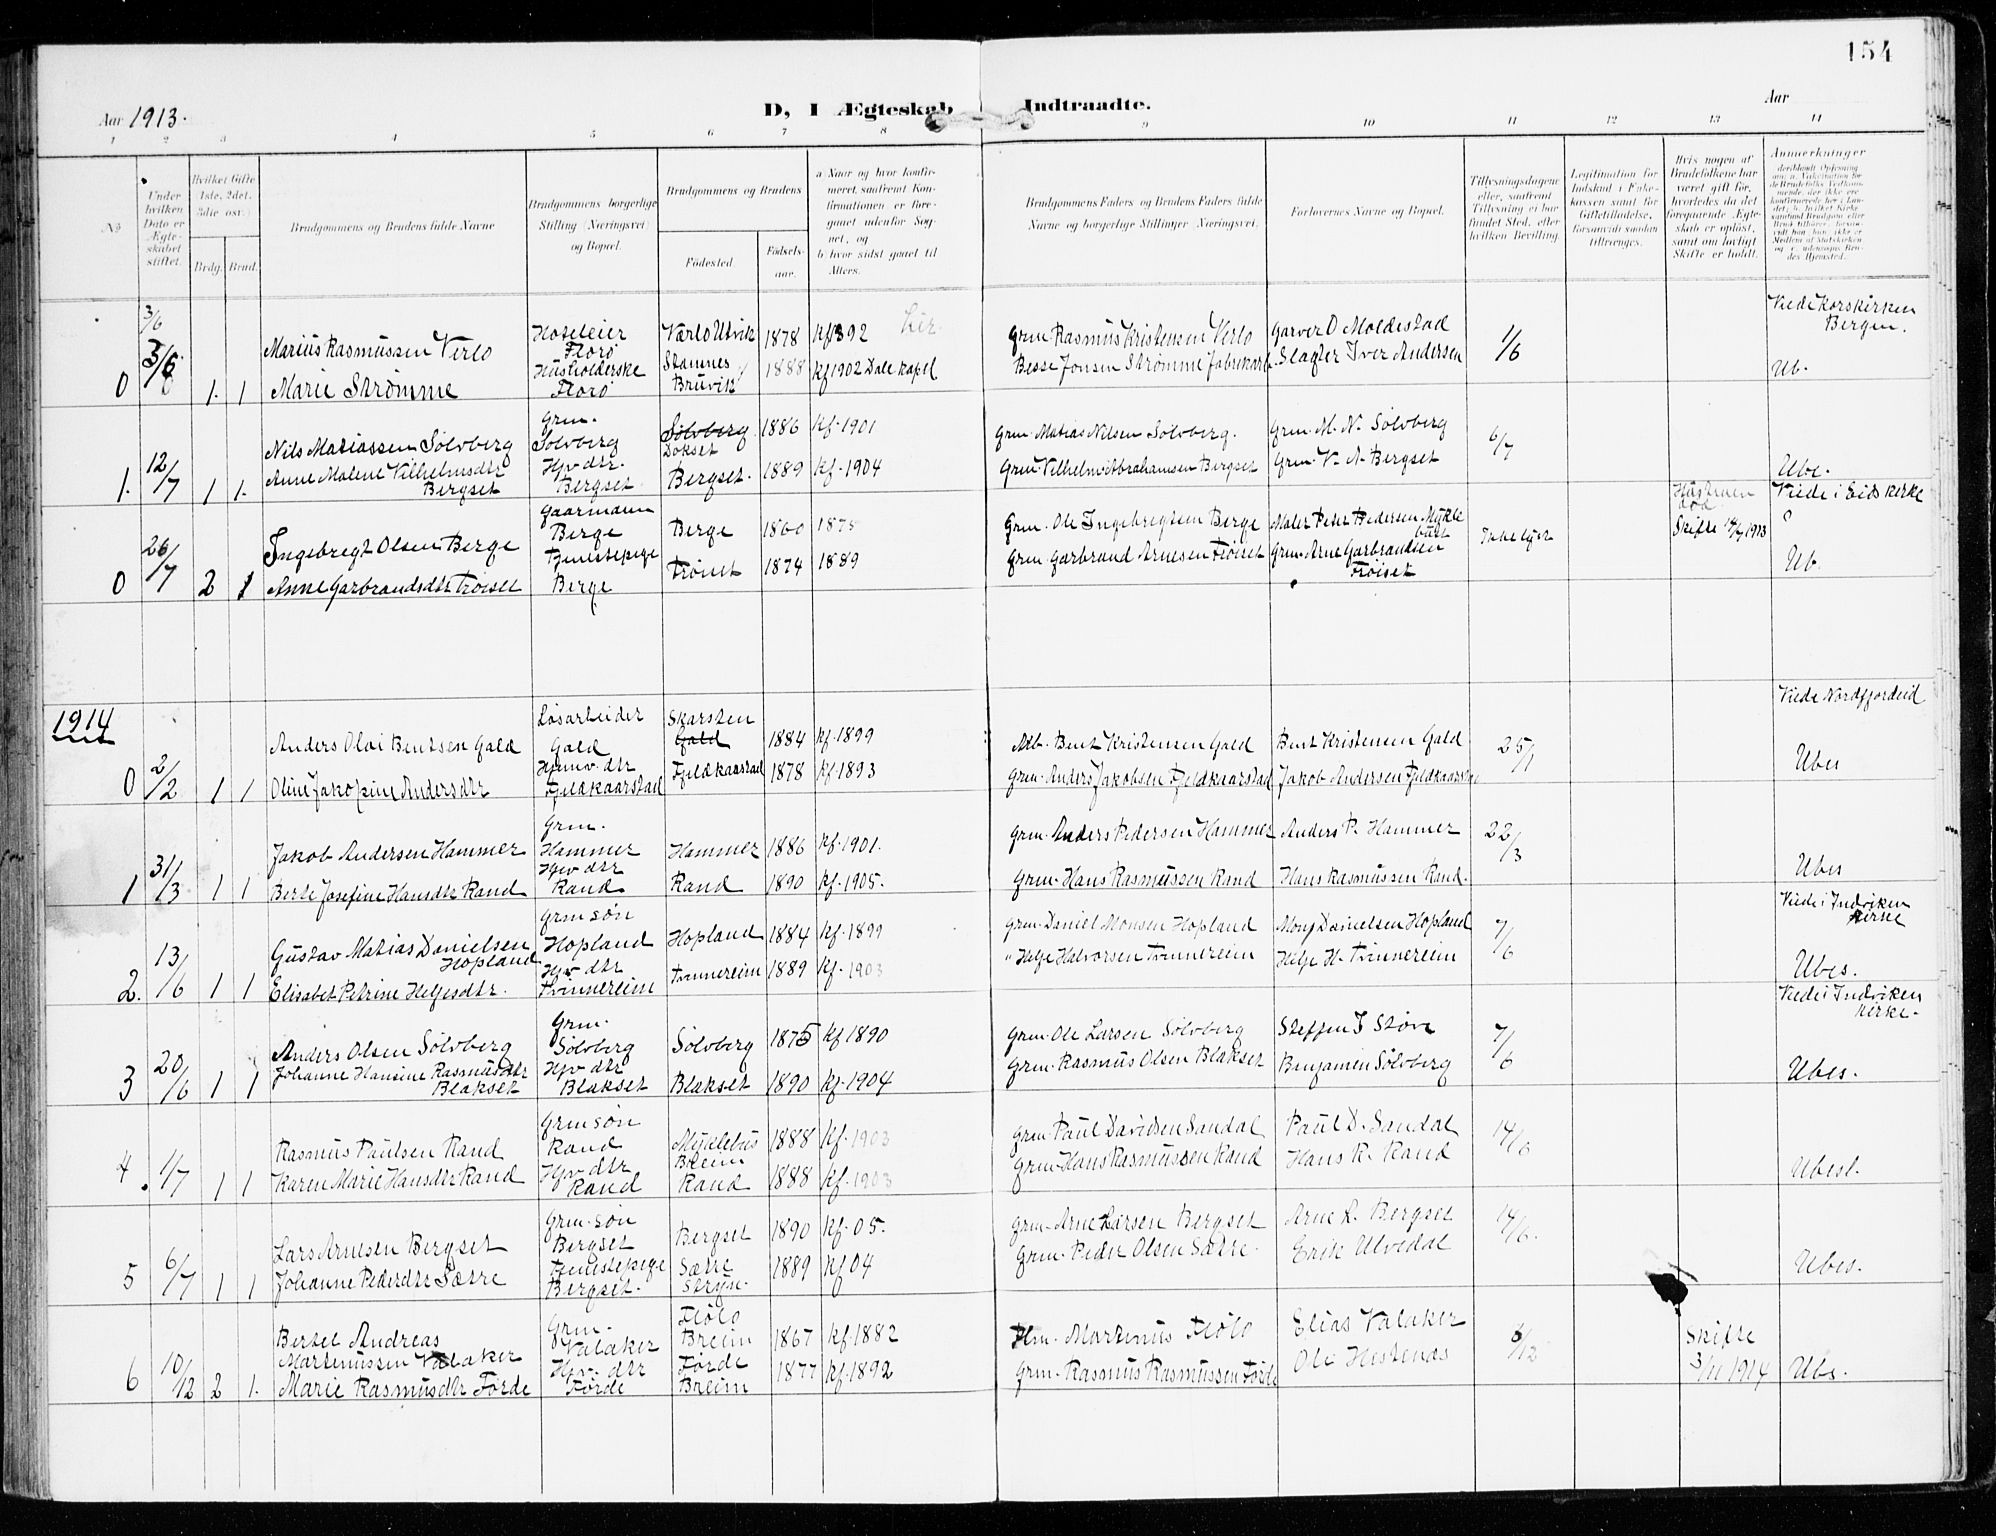 154
Aar 1913.
D, I Ægteskab Indtraadte.
Aar
1 2 3 4 5 6 7 8 9 10 11 12 13 14
No
Under hvilken Dato er Ægteskabet stiftet.
Hvilket Gifte (1ste, 2det, 3die osv.)
Brdg. Brud.
Brudgommens og Brudens fulde Navne
Brudgommens borgerlige Stilling (Næringsvei) og Bopæl.
Brudgommens og Brudens
Fødested. Fødselsaar.
a Naar og hvor konfirmeret, saafremt Konfirmationen er foregaaet udenfor Sognet, og
b hvor sidst gaaet til Alters.
Brudgommens Faders og Brudens Faders fulde Navne og borgerlige Stillinger Næringsvei.
Forlovernes Navne og Bopæl.
Tillysningsdagene eller, saafremt Tillysning ei har fundet Sted, efter hvilken Bevilling.
Legitimation for Indskud i Enkekassen samt for Giftetilladelse, forsaavidt saadan tiltrænges.
Hvis nogen af Brudefolkene har været gift før, hvorledes da det foregaaende Ægteskab er opløst, samt om lovligt Skifte er holdt.
Anmerkninger
0 3/6 3/6 1. 1
Marius Rasmussen Verlo
Marie Strømme
Hoteleier Florø
Husholderske Florø
Værlo Utvik 1878 kf 1892
Stamnes Bruvik 1888 kf 1902 Dale Kapel
Grm. Rasmus Kristensen Verlo
Besse Jonsen Strømme
Garver O Moldestad
Slagter Iver Andersen
1/6
Viede Korskirken Bergen.
Ub.
1. 12/7 1 1.
Nils Matiassen Sølvberg
Anne Malene Vilhelmsdtr Bergset
Grm. Sølvberg
Hjv dtr. Bergset
Sølvberg Dokset 1886 kf. 1901
Bergset. 1889 kf. 1904
Grm. Matias Nilsen Sølvberg.
Grm. Vilhelm Abrahamsen Bergset
Grm. M. N. Sølvberg
Grm. V. A. Bergset
6/7
Ube.
0 26/7 2 1
Ingebregt Olsen Berge
Anne Garbrandsdtr Frøiset
Gaarmann Berge
Tjenestepige Berge
Berge 1860 1875
Frøiset 1874 1889
Grm. Ole Ingebregtsen Berge
Grm. Garbrand Arnesen Frøiset
Maler Peter Pedersen Myklebust
Grm. Arne Garbrandsen Frøiset
Ikke lyst
Hustruen død.
Skifte 1913
Viede i Eids Kirke
Ub.
1914
0 2/2 1 1
Anders Olai Bentsen Gald
Oline Jakobine Andersdtr
Løsarbeider Gald
Hjmv. dtr Fjeldkaarstad
Skarsten Gald 1884 kf. 1899
Fjeldkaarstad 1878 kf. 1893
Arb. Bent Kristensen Gald
Grm. Anders Jakobsen Fjeldkaarstad
Bent Kristensen Gald
Jakob Andersen Fjeldkaarstad
25/1
Viede Nordfjordeid
Ubes
1 31/3 1 1
Jakob Andersen Hammer
Berte Josefine Hansdtr Rand
Grm. Hammer
Hjv dtr Rand
Hammer 1886 kf. 1901.
Rand 1890 kf. 1905.
Grm. Anders Pedersen Hammer
Grm. Hans Rasmussen Rand
Anders P. Hammer
Hans Rasmussen Rand.
22/3
Ubes
2. 13/6 1 1
Gustav Matias Danielsen Hopland
Elisabet Petrine Helgesdtr.
Grm søn Hopland
Hjv dtr Tvinnereim
Hopland 1884 kf. 1899
Tvinnereim 1889 kf. 1903
Grm. Daniel Monsen Hopland
" Helge Halvorsen Tvinnereim
Mons Danielsen Hopland
Helge H. Tvinnereim
7/6
Viede i Indviken Kirke
Ubes.
3 20/6 1 1
Anders Olsen Sølvberg
Johanne Hansine Rasmusdtr Blakset
Grm. Sølvberg
Hjv dtr Blakset
Sølvberg 1875 kf 1890
Blakset 1890 kf. 1904
Grm. Ole Larsen Sølvberg
Grm. Rasmus Olsen Blakset
Steffen J Støve
Benjamin Sølvberg
7/6
Viede i Indviken Kirke.
Ubes.
4. 1/7 1 1
Rasmus Paulsen Rand
Karen Marie Hansdtr Rand
Grm søn Rand
Hjv dtr Rand
Myklebus Breim 1888 kf. 1903
Rand 1888 kf. 1903
Grm Paul Davidsen Sandal
Grm. Hans Rasmussen Rand
Paul D. Sandal
Hans R. Rand
14/6
Ubest.
5 6/7 1 1
Lars Arnesen Bergset
Johanne Pedersdtr Sætre
Grm. søn Bergset
Tjenestepige Bergset.
Bergset 1890 kf. 05.
Sætre Stryn. 1889 kf 04
Grm. Arne Larsen Bergset
Grm. Peder Olsen Sætre.
Arne L. Bergset
Erik Ulvedal
14/6.
Ubes.
6 10/12 2 1.
Bertel Andreas Martinussen Valaker
Marie Rasmusdtr Førde
Grm. Valaker
Hjv. dtr Førde
Fløtø Breim 1867 kf. 1882
Førde Breim 1877 kf. 1892
Martinus Fløtø
Grm. Rasmus Rasmussen Førde
Elias Valaker
Ole Hestenæs
6/12
Skifte 3/11 1914
Ubs.